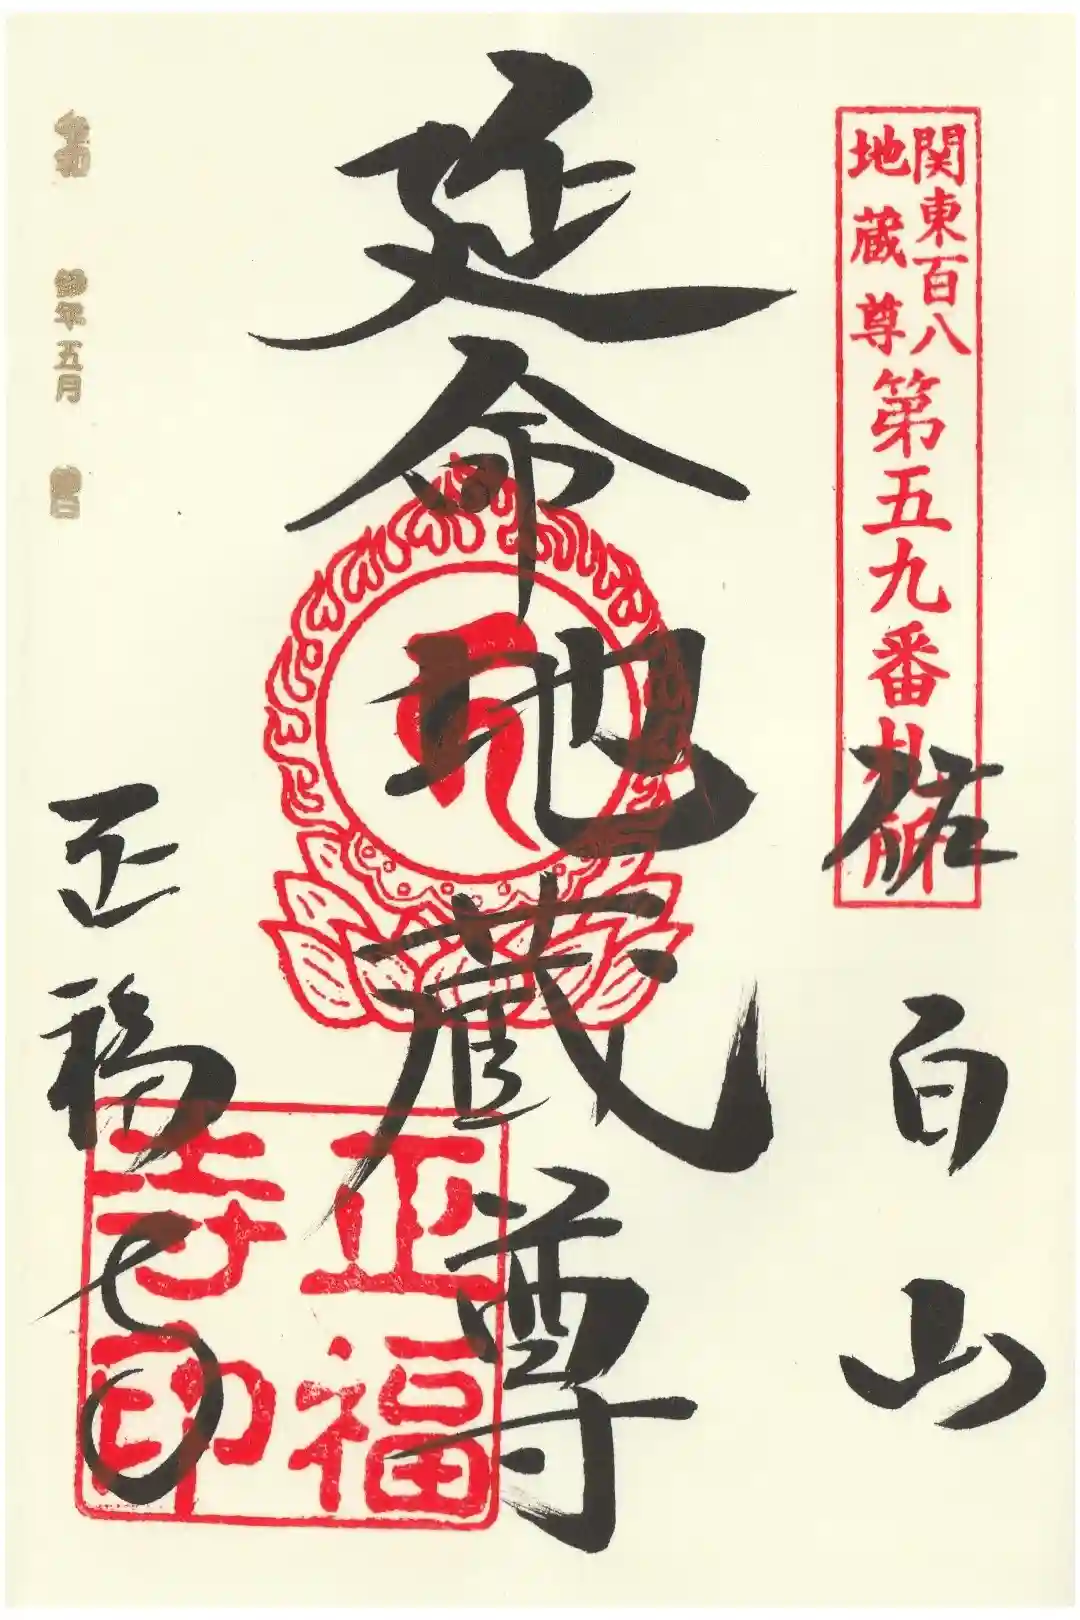 関東百八
地蔵尊
第五九番札所
佑百山
延命地蔵尊
正福寺
正福
寺印
令和
年五月